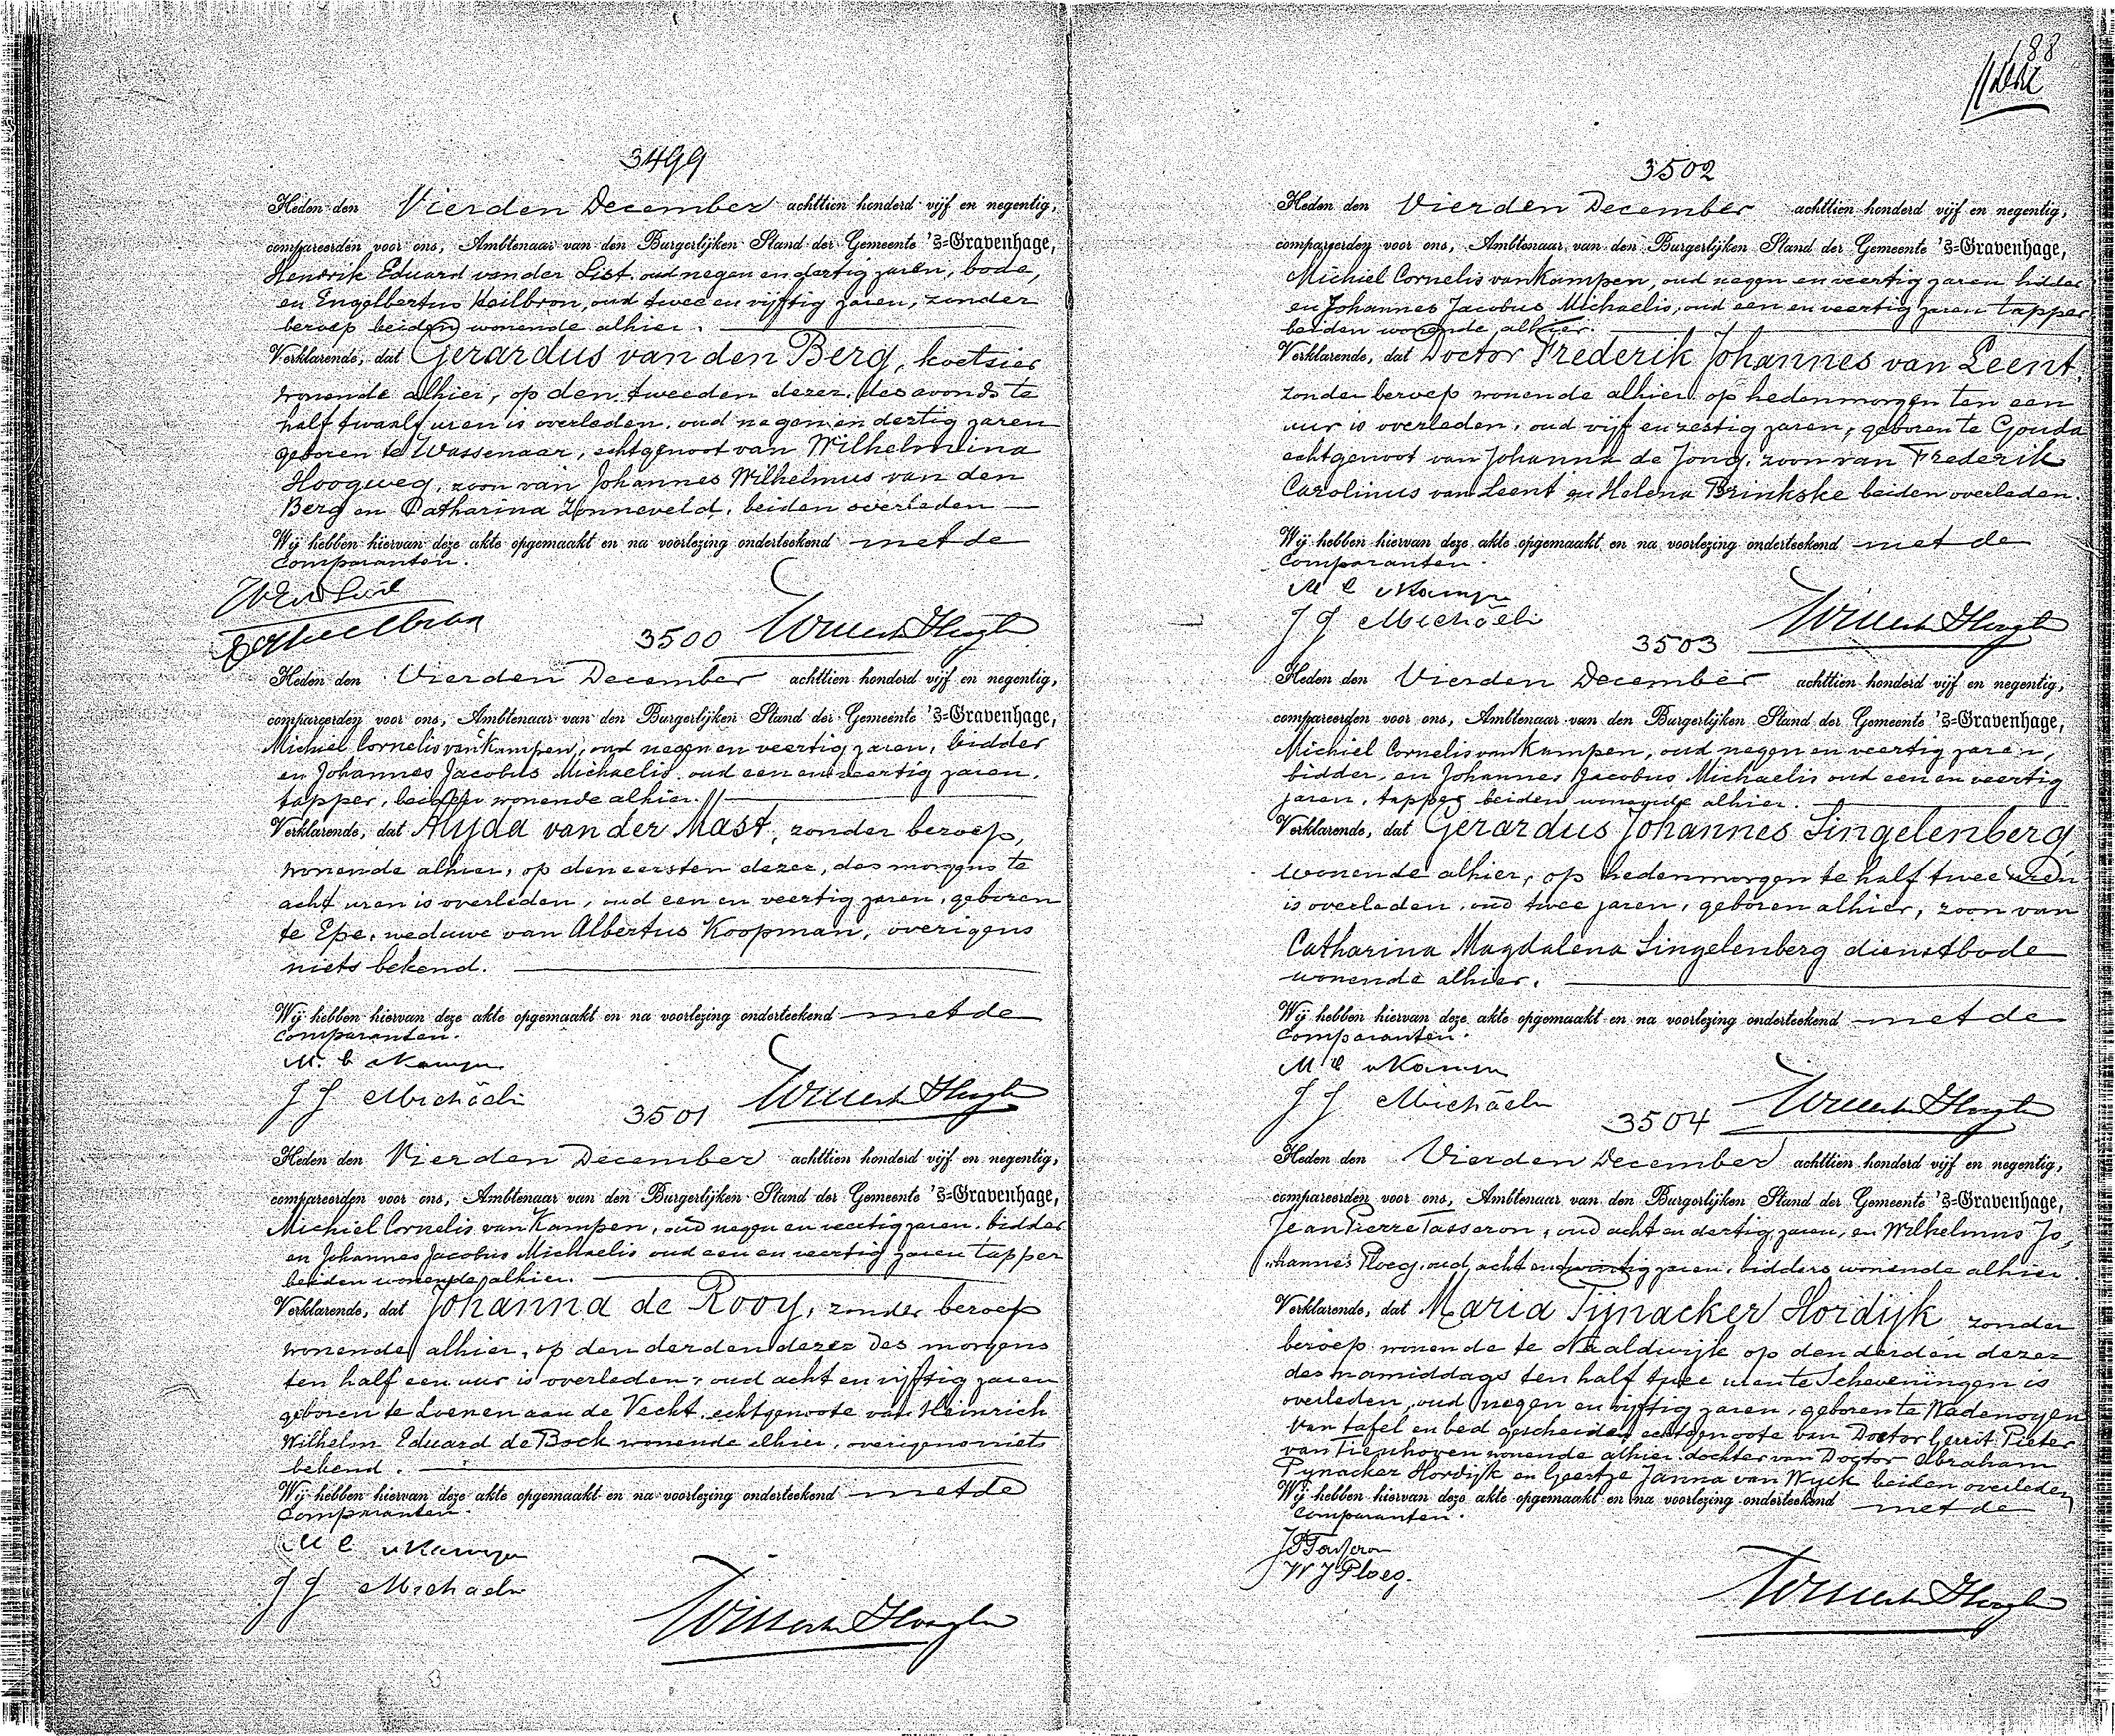 3499
Heden den Vierden December achttien honderd vijf en negentig,
compareerden voor ons, Ambtenaar van den Burgerlijken Stand der Gemeente 's=Gravenhage,
Hendrik Eduard van der List, oud negen en dertig jaren, bode,
en Engelbertus Heilbron, oud twee en vijftig jaren, zonder
beroep beiden wonende alhier.
Verklarende, dat Gerardus van den Berg, koetsier
wonende alhier, op den tweeden dezer, des avonds te
half twaalf uren is overleden, oud negen en dertig jaren
geboren te Wassenaar, echtgenoot van Wilhelmina
Hoogweg, zoon van Johannes Wilhelmus van den
Berg en Catharina Zonneveld, beiden overleden
Wij hebben hiervan deze akte opgemaakt en na voorlezing onderteekend met de
Comparanten.
3500
Heden den Vierden December achttien honderd vijf en negentig,
compareerden voor ons, Ambtenaar van den Burgerlijken Stand der Gemeente 's=Gravenhage,
Michiel Cornelis van Kampen, oud negen en veertig jaren, bidder
en Johannes Jacobus Michaelis, oud een en veertig jaren,
tapper, beiden wonende alhier.
Verklarende, dat Alyda van der Mast, zonder beroep,
wonende alhier, op den eersten dezer, des morgens te
acht uren is overleden, oud een en veertig jaren, geboren
te Epe, weduwe van Albertus Koopman, overigens
niets bekend.
Wij hebben hiervan deze akte opgemaakt en na voorlezing onderteekend met de
Comparanten.
M. C v Kampen
J J Michaelis
3501
Heden den Vierden December achttien honderd vijf en negentig,
compareerden voor ons, Ambtenaar van den Burgerlijken Stand der Gemeente 's=Gravenhage,
Michiel Cornelis van Kampen, oud negen en veertig jaren, bidder
en Johannes Jacobus Michaelis oud een en veertig jaren tapper
beiden wonende alhier.
Verklarende, dat Johanna de Rooy, zonder beroep
wonende alhier, op den derden dezer des morgens
ten half een uur is overleden, oud acht en vijftig jaren
geboren te Loenen aan de Vecht, echtgenoote van Heinrich
Wilhelm Eduard de Bock wonende alhier, overigens niets
bekend.
Wij hebben hiervan deze akte opgemaakt en na voorlezing onderteekend met de
Comparanten.
M C v Kampen
J J Michaelis
188
3502
Heden den Vierden December achttien honderd vijf en negentig,
compareerden voor ons, Ambtenaar van den Burgerlijken Stand der Gemeente 's=Gravenhage,
Michiel Cornelis van Kampen, oud negen en veertig jaren bidder
en Johannes Jacobus Michaelis, oud een en veertig jaren tapper
beiden wonende alhier.
Verklarende, dat Doctor Frederik Johannes van Leent,
zonder beroep wonende alhier op hedenmorgen ten een
uur is overleden, oud vijf en zestig jaren, geboren te Gouda
echtgenoot van Johanna de Jong, zoon van Frederik
Carolinus van Leent en Helena Brinkske beiden overleden.
Wij hebben hiervan deze akte opgemaakt en na voorlezing onderteekend met de
Comparanten.
M C v Kampen
J J Michaelis
3503
Heden den Vierden December achttien honderd vijf en negentig,
compareerden voor ons, Ambtenaar van den Burgerlijken Stand der Gemeente 's=Gravenhage,
Michiel Cornelis van Kampen, oud negen en veertig jaren,
bidder, en Johannes Jacobus Michaelis oud een en veertig
jaren, tapper beiden wonende alhier.
Verklarende, dat Gerardus Johannes Singelenberg,
wonende alhier, op hedenmorgen te half twee uren
is overleden, oud twee jaren, geboren alhier, zoon van
Catharina Magdalena Singelenberg dienstbode
wonende alhier.
Wij hebben hiervan deze akte opgemaakt en na voorlezing onderteekend met de
Comparanten.
M C v Kampen
J J Michaelis
3504
Heden den Vierden December achttien honderd vijf en negentig,
compareerden voor ons, Ambtenaar van den Burgerlijken Stand der Gemeente 's=Gravenhage,
Jean Pierre Tasseron, oud acht en dertig jaren, en Wilhelmus Jo,
"hannes Ploeg, oud acht en twintig jaren, bidders wonende alhier.
Verklarende, dat Maria Pijnacker Hordijk zonder
beroep wonende te Naaldwijk op den derden dezer
des namiddags ten half twee uren te Scheveningen is
overleden, oud negen en vijftig jaren, geboren te Wadenoyen
van tafel en bed gescheiden echtgenoote van Doctor Gerrit Pieter
van Tienhoven wonende alhier dochter van Doctor Abraham
Pynacker Hordijk en Geertje Janna van Wyck beiden overleden
Wij hebben hiervan deze akte opgemaakt en na voorlezing onderteekend met de
Comparanten.
JP Tasseron
W J Ploeg.